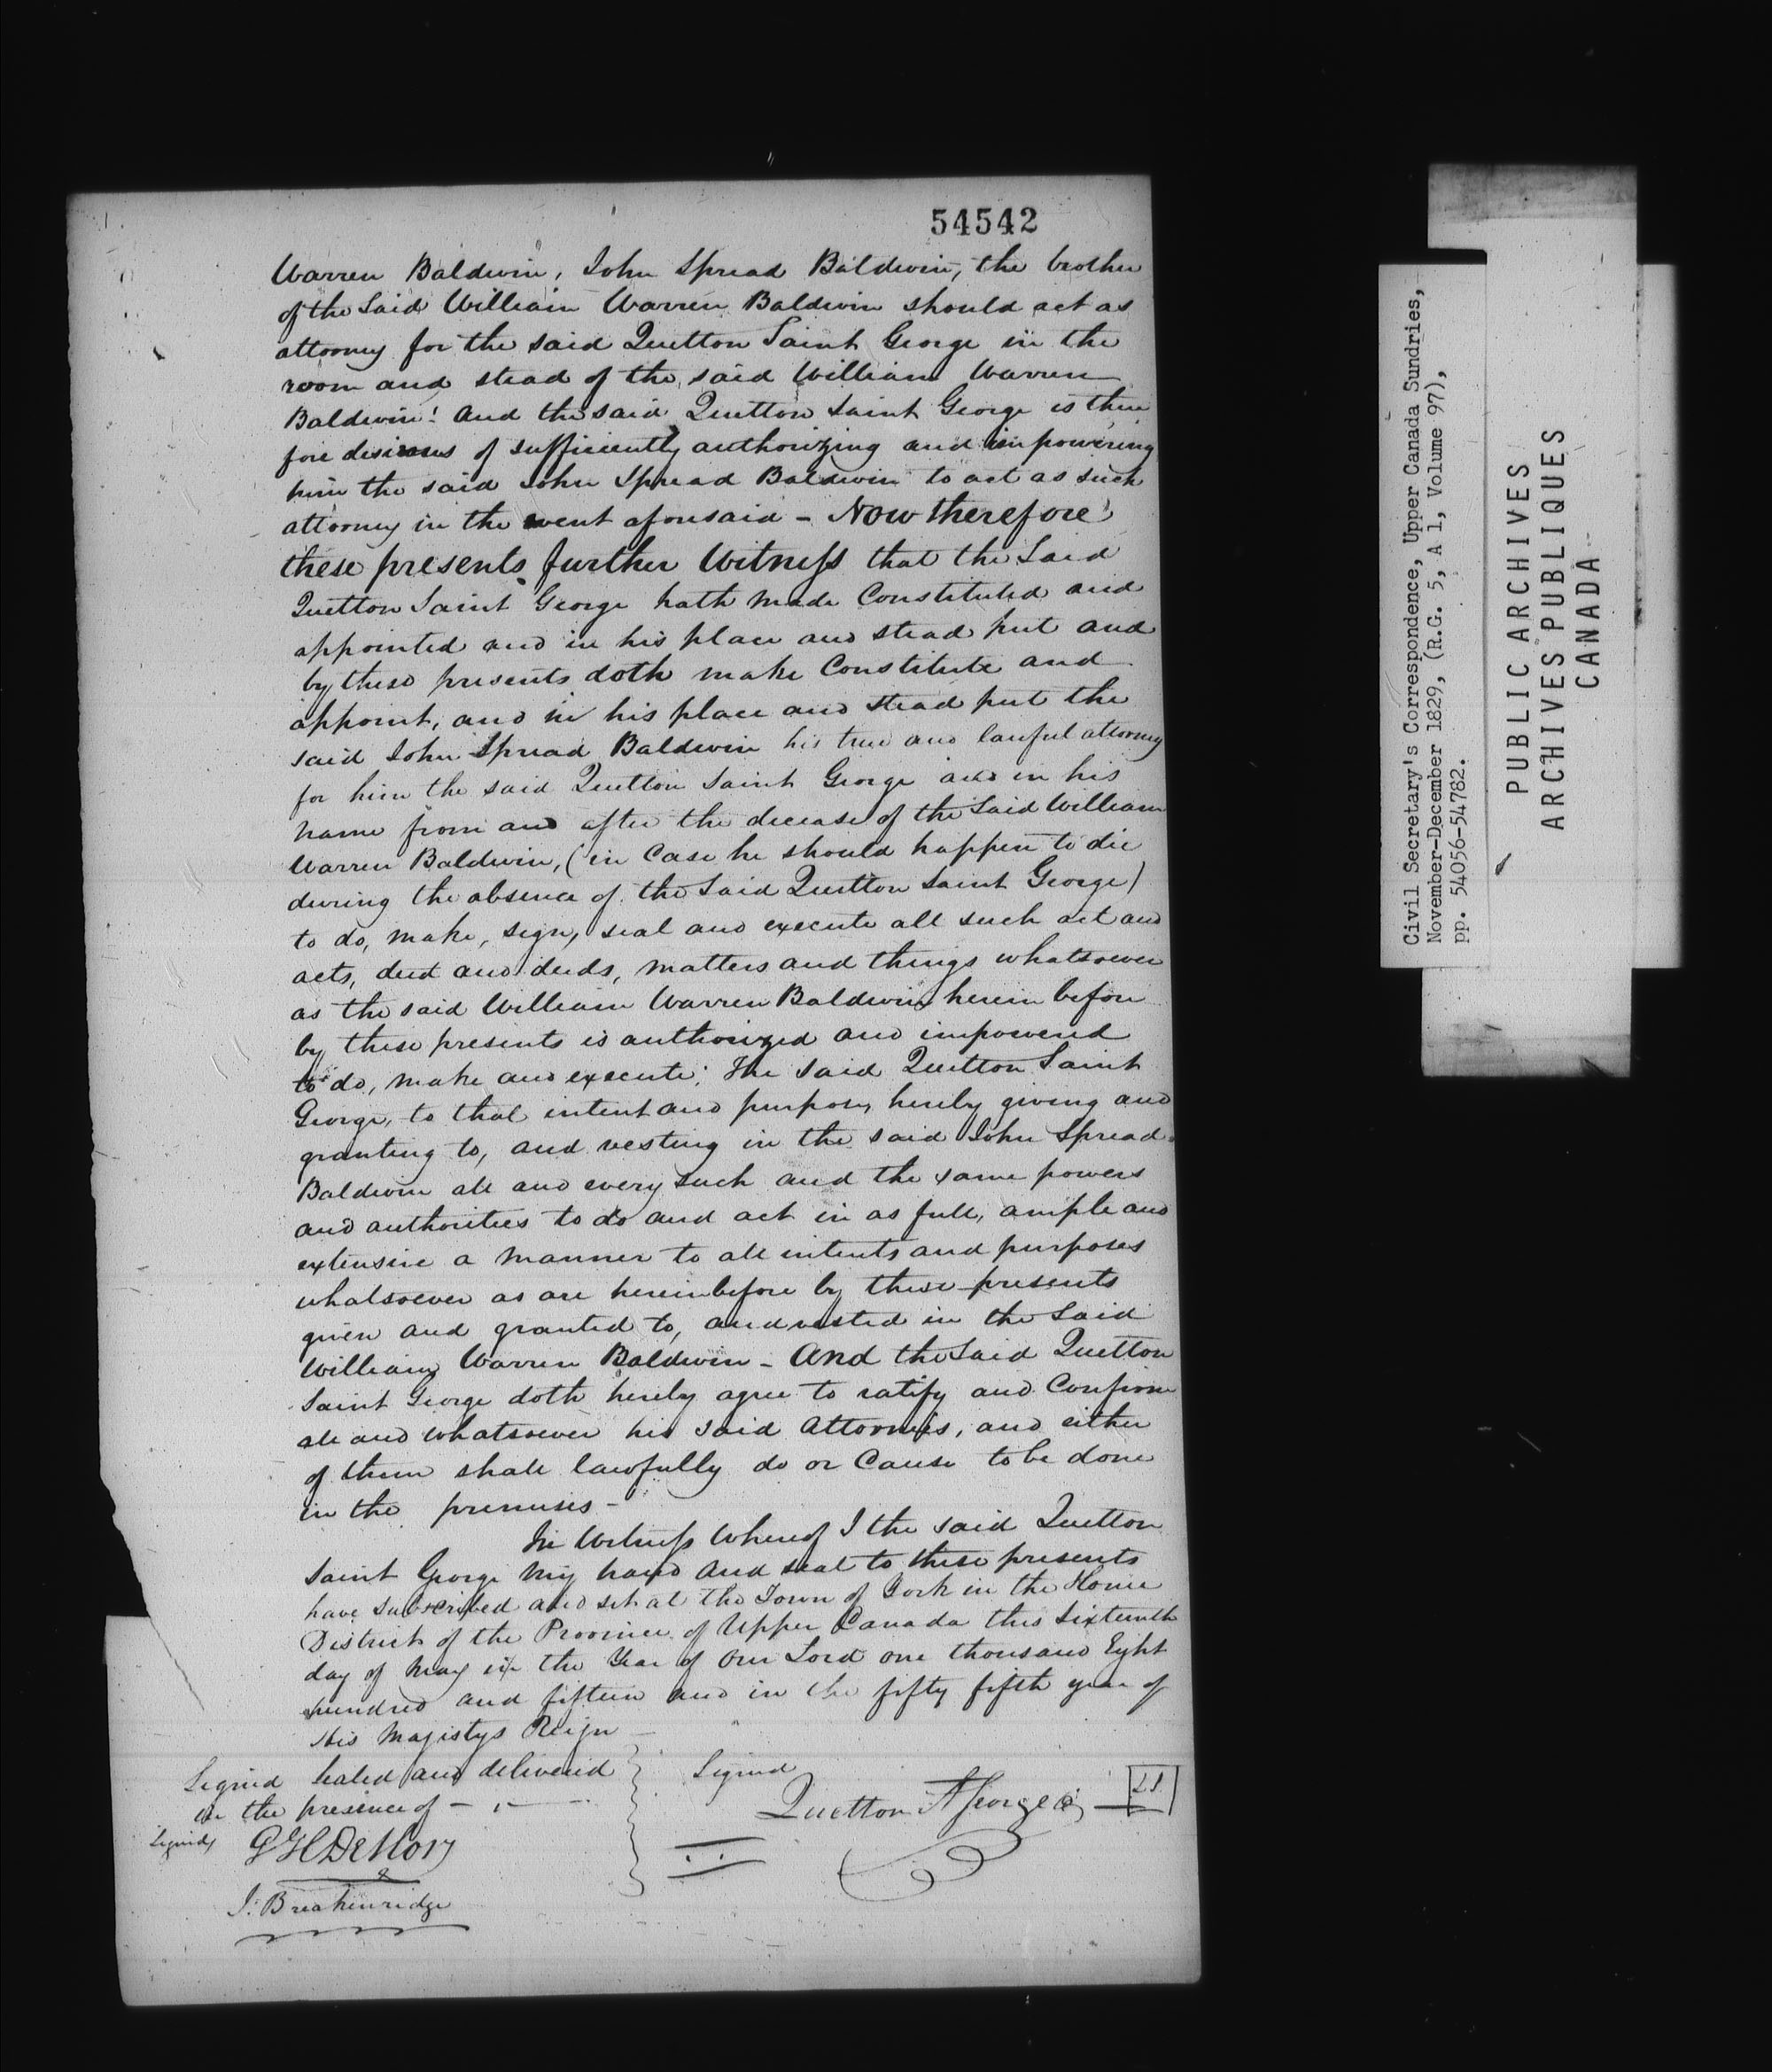 54542
Warren Baldwin, John Spread Baldwin, the brother
of the said William Warren Baldwin should act as
attorney for the said Quetton Saint George in the
room and stead of the said William Warren
Baldwin: and the said Quetton Saint George is there
fore desirous of sufficiently authorizing and impowering
him the said John Spread Baldwin to act as such
attorney in the event aforesaid - Now therefore
these presents further Witness that the said
Quetton Saint George hath made Constituted and
appointed and in his place and stead put and
by these presents doth make Constitute and
appoint, and in his place and stead put the
said John Spread Baldwin his true and lawful attorney
for him the said Quetton Saint George and in his
name from and after the decease of the said William
Warren Baldwin, (in Case he should happen to die
during the absence of the said Quetton Saint George)
to do, make, sign, seal and execute all such act and
acts, deed and deeds, matters and things whatsoever
as the said William Warren Baldwin herein before
by these presents is authorized and impowered
to do, make and execute; The said Quetton Saint
George, to that intent and purpose, hereby giving and
granting to, and vesting in the said John Spread
Baldwin all and every such and the same powers
and authorities to do and act in as full, ample and
extensive a manner to all intents and purposes
whatsoever as are hereinbefore by these presents
given and granted to, and vested in the said
William Warren Baldwin - And the said Quetton
Saint George doth hereby agree to ratify and Confirm
all and whatsoever his said Attornies, and either
of them shall lawfully do or Cause to be done
in the premises -
In Witness Whereof I the said Quetton
Saint George my hand and seal to these presents
have subscribed and set at the Town of York in the Home
District of the Province of Upper Canada this Sixteenth
day of May in the Year of Our Lord one thousand Eight
hundred and fifteen and in the fifty fifth year of
His Majestys Reign
Signed Sealed and delivered
in the presence of -
Signed
Quetton St George
LS
Signed
J. Breakenridge
Civil Secretary's Correspondence, Upper Canada Sundries,
November-December 1829, (R.G. 5, A 1, Volume 97),
pp. 54056-54782.
PUBLIC ARCHIVES
ARCHIVES PUBLIQUES
CANADA